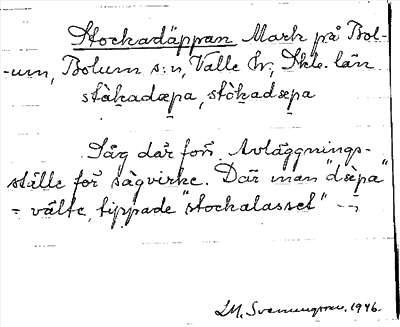 Stockadäppan Mark på Bol-
-um, Bolum s:n, Valle hr, Skbs. län
stàkadæpa, stòkadæpa
Såg där förr. Avläggnings-
ställe för sågvirke. Där man "dæpa"
= välte, tippade "stockalasset" --;
LM. Svenungsson. 1946.